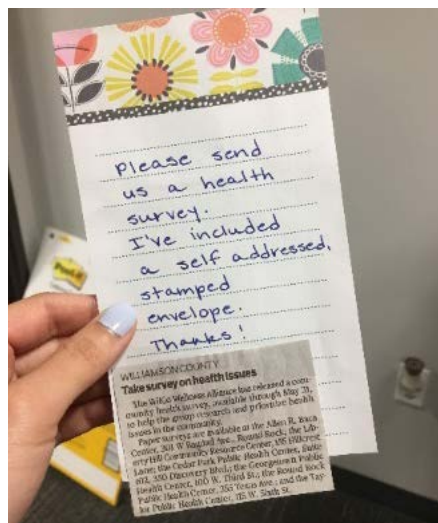 please send
us a health
survey.
I've included
a self addressed,
stamped
envelope.
Thanks!
Post-it
WILLIAMSON COUNTY
Take survey on health issues
The WilCo Wellness Alliance has released a com-
munity health survey, available through May 31,
to help the group research and prioritize health
issues in the community.
Paper surveys are available at the Allen R. Baca
Center, 301 W. Bagdad Ave., Round Rock; the Lib-
erty Hill Community Resource Center, 115 Hillcrest
Lane; the Cedar Park Public Health Center, Suite
350 Discovery Blvd.; the Georgetown Public
Health Center, 100 W. Third St.; the Round Rock
Public Health Center, 355 Texas Ave.; and the Tay-
lor Public Health Center, 115 W. Sixth St.